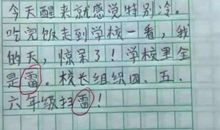 今天醒来就感觉特别冷。
吃完饭走到学校一看,我
的天,惊呆了!学校里全
是雷。校长组织四、五、
六年级扫雷!